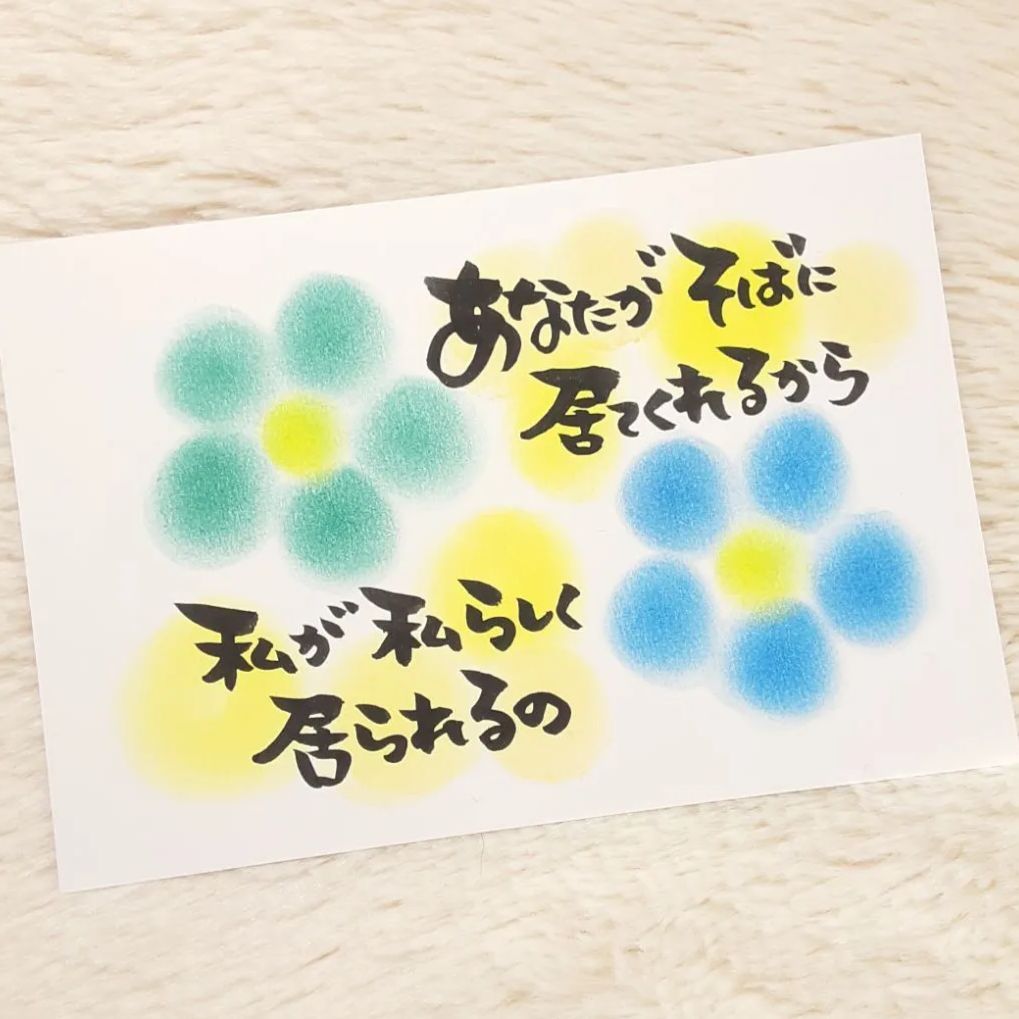 あなたが そばに
居てくれるから
私が 私らしく
居られるの